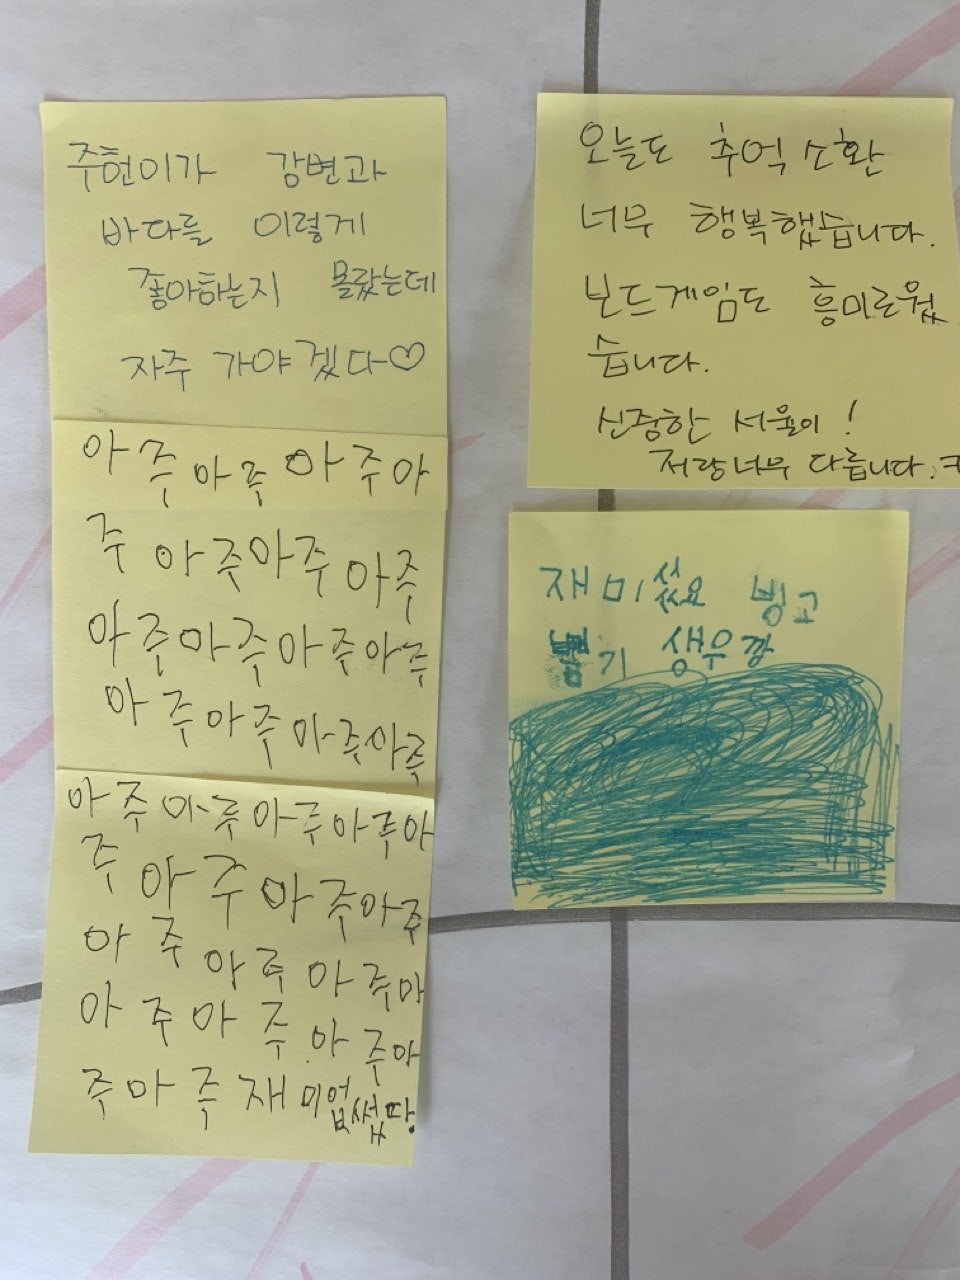 주현이가 강변과
바다를 이렇게
좋아하는지 몰랐는데
자주 가야겠다♡
아주아주아주아
주아주아주아주
아주아주아주아주
아주아주아주아주
아주아주아주아주아
주아주아주아주
아주아주아주아
아주아주아주아
주아주재미업썼땅
오늘도 추억소환
너무 행복했습니다.
보드게임도 흥미로웠
습니다.
신중한 서율이!
저랑너무 다릅니다.ㅋ
재미섰요 빙고
뽑기 생우깡